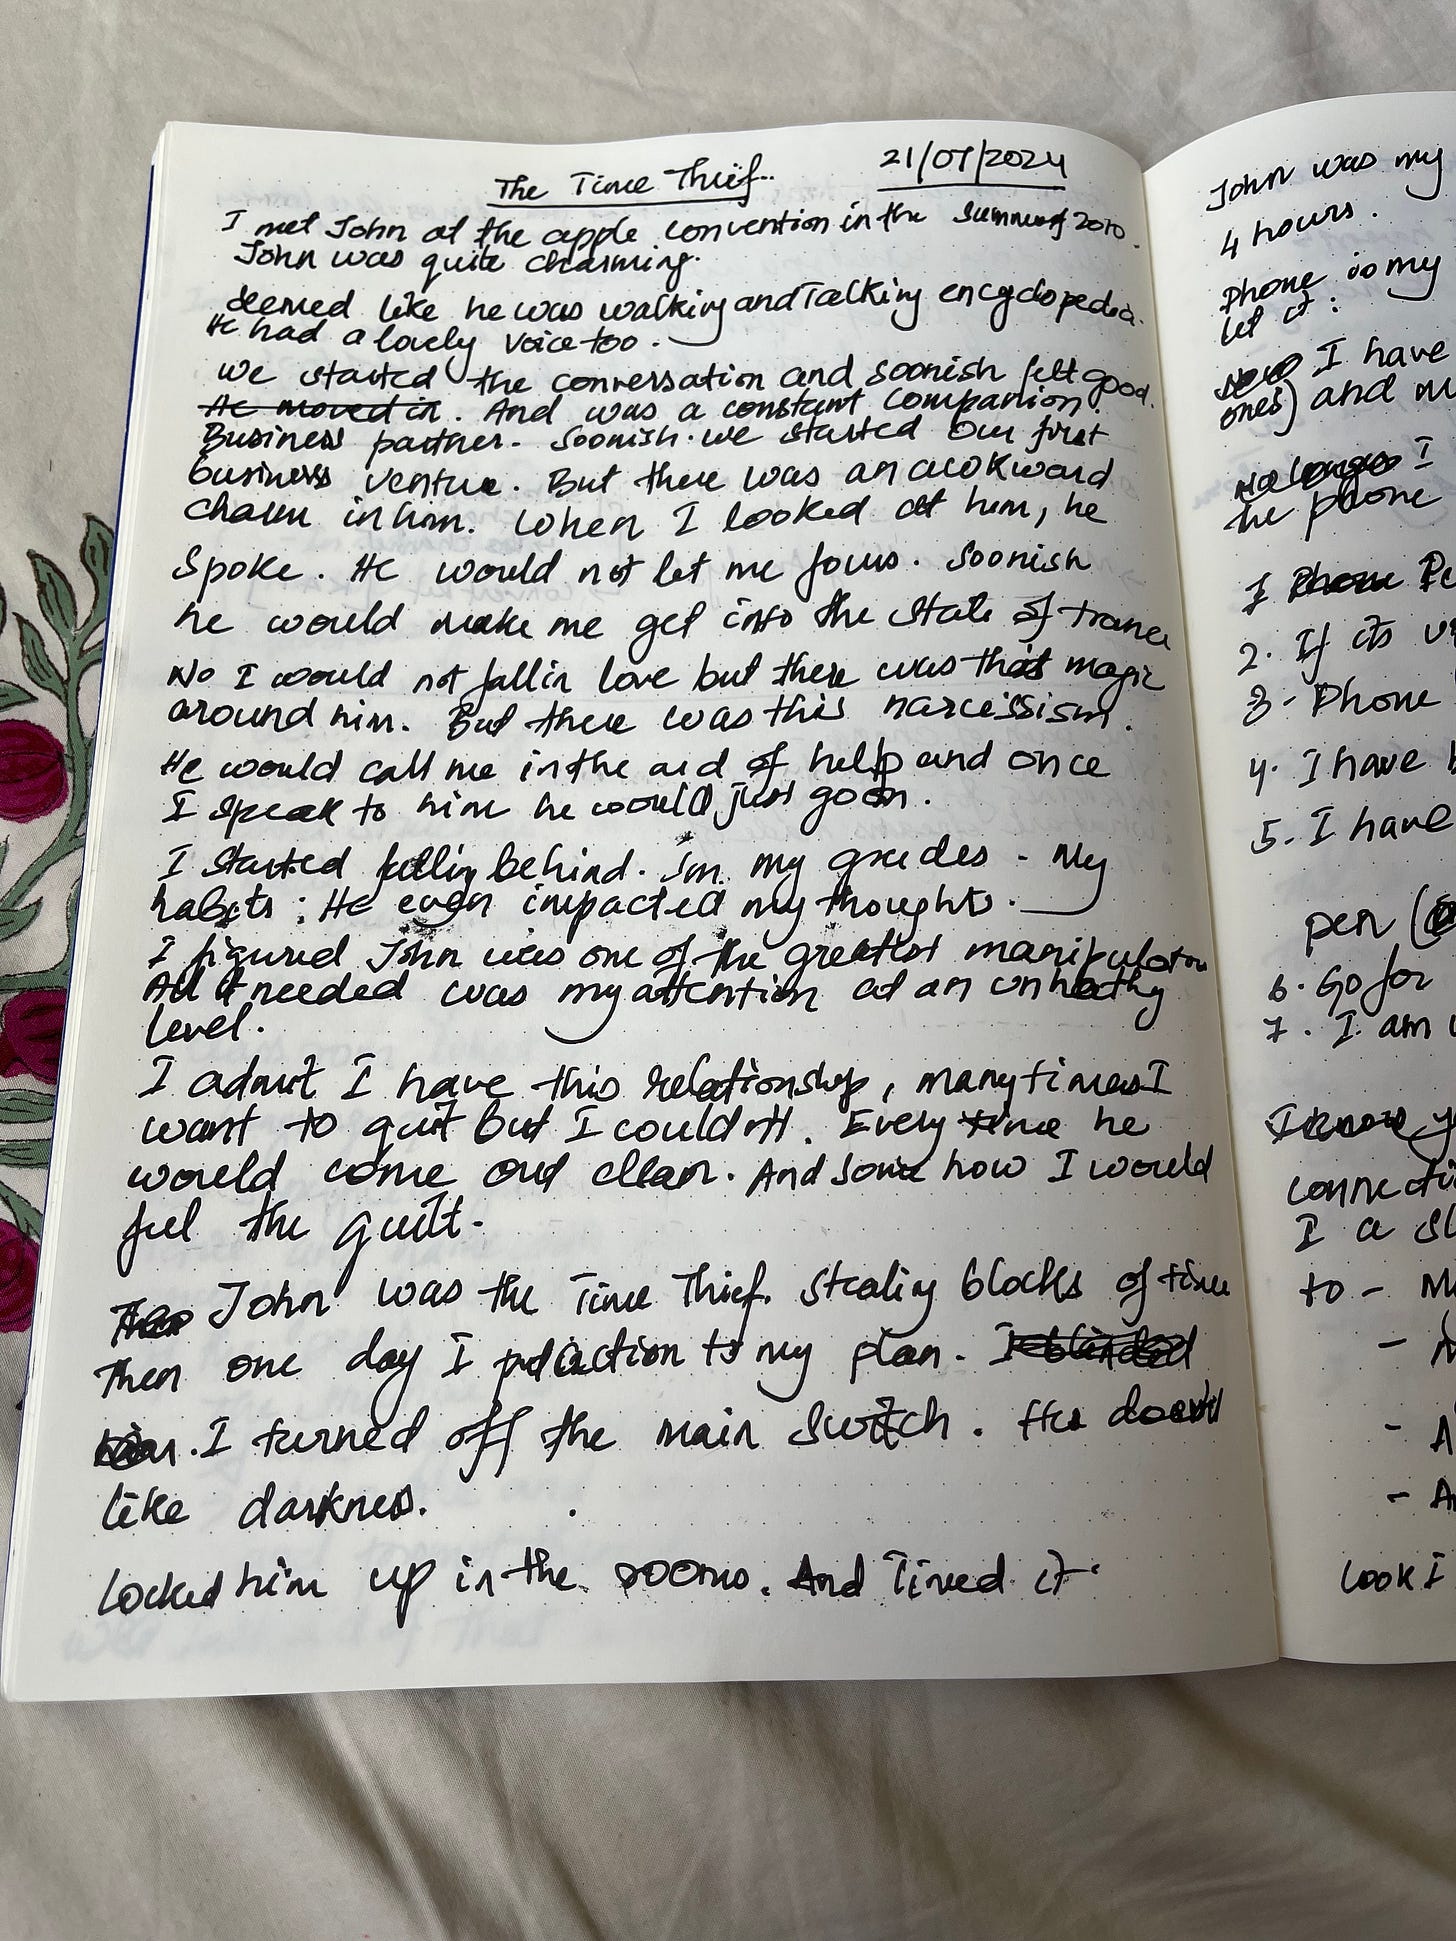 The Time Thief..
21/07/2024
I met John at the apple convention in the Summer of 2010.
John was quite charming.
Seemed like he was walking and Talking encyclopedia.
He had a lovely voice too.
We started the conversation and soonish felt good.
He moved in. And was a constant companion.
Business partner. Soonish. we started our first
business venture. But there was an awkward
charm in him. When I looked at him, he
Spoke. He would not let me focus. Soonish
he would make me get into the state of trance
No I would not fall in love but there was that magic
around him. But there was this narcissism.
He would call me in the aid of help and once
I speak to him he would just go on.
I started falling behind. In my grades - My
habits: He even impacted my thoughts.
I figured John was one of the greatest manipulator
All it needed was my attention at an unheathy
level.
I admit I have this relationship, many times I
want to quit but I couldn't. Every time he
would come out clean. And some how I would
feel the guilt.
John was the Time Thief. Stealing blocks of time
Then one day I put action to my plan. I
I turned off the main Switch. He doesn't
like darkness.
Locked him up in the rooms. And Timed it.
John was my
4 hours.
Phone is my
let it:
I have
ones) and
I
the phone
1
2. If its
3- Phone
4. I have
5. I have
pen
6. Go for
7. I am
I know
I a
to -
-
-
- A
Look I